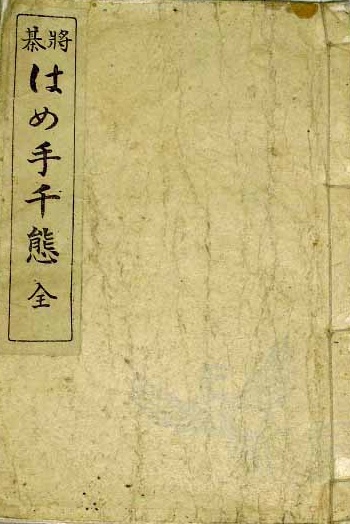 将棊
はめ手千態 全